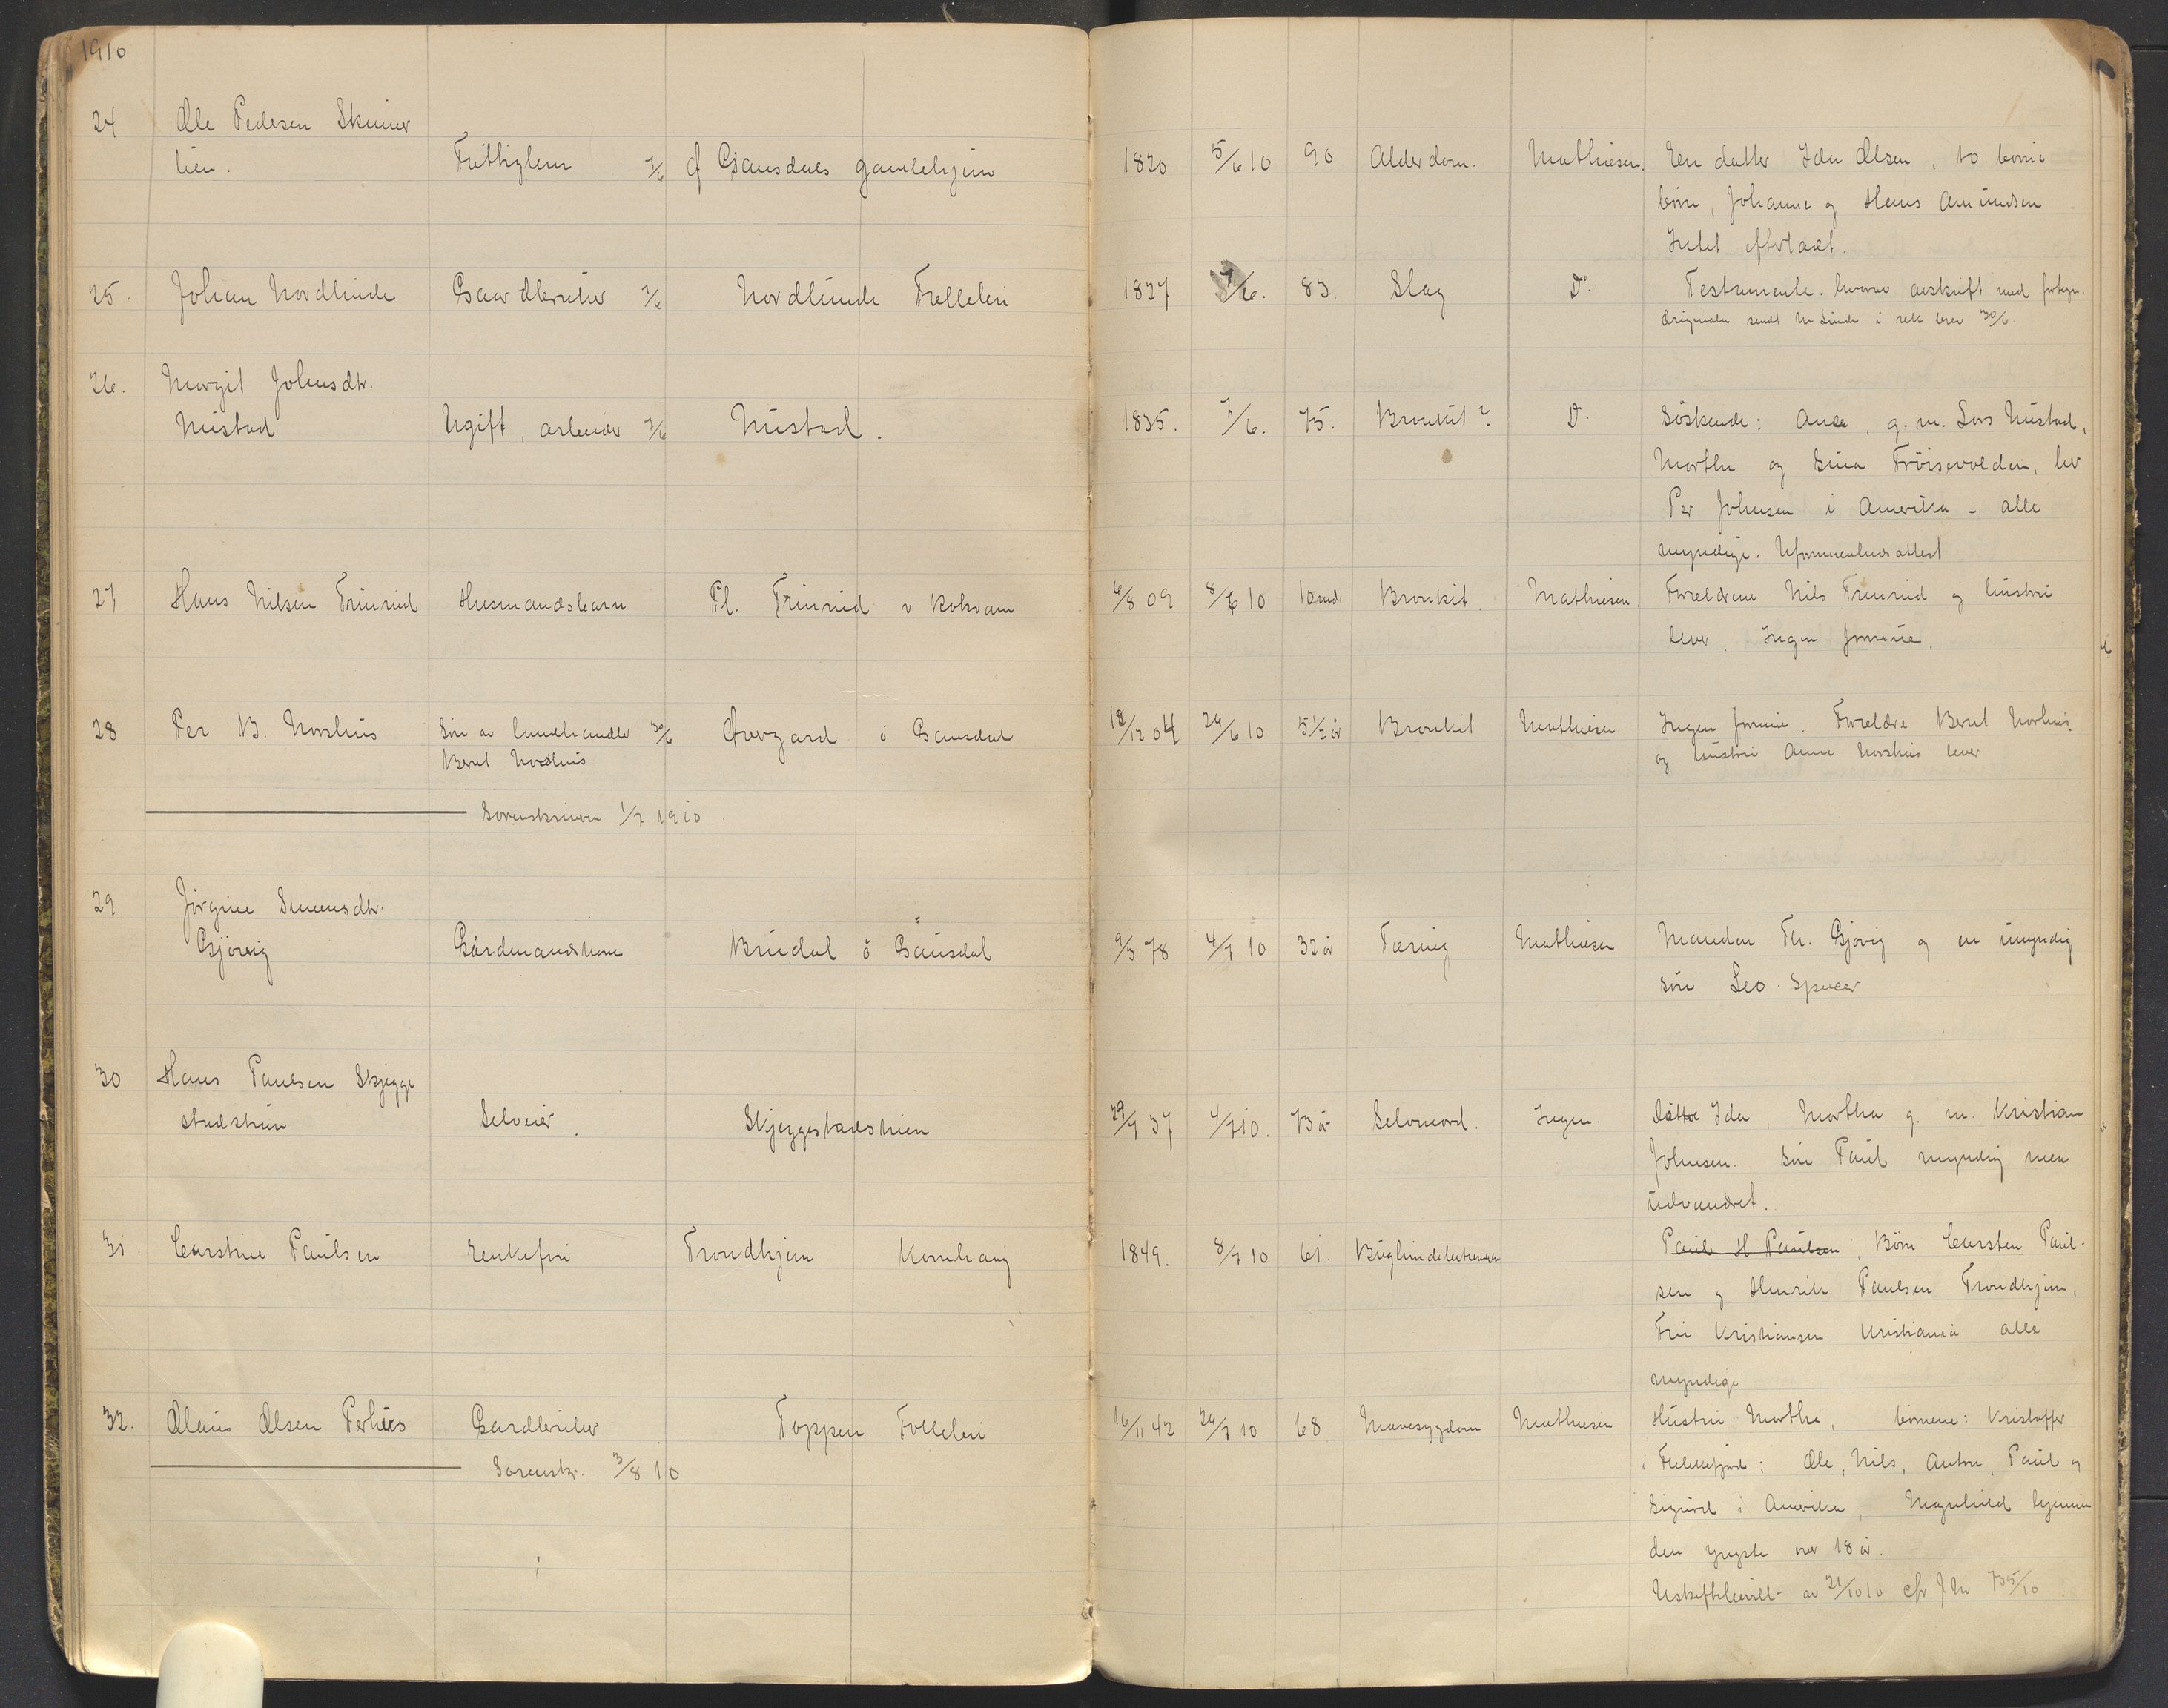 1910
24 Ole Pedersen Skuuer
lien. Fattiglem 7/6 Ø Gausdals gamlehjem 1820 5/6 10 90 Alderdom. Mathiesen. En datter Ida Olsen, to barne
børn, Johanne og Hans Amundsen
Intet efterladt.
25. Johan Nordlinde Gaardbruker 7/6 Nordlinde Follebu 1827 7/6. 83. Slag Do. Testamente. hvorav avskrift med
Originalen sendt in Linde i rek brev 30/6.
26. Margit Johnsdtr.
Nustad Ugift, arbeider 7/6 Nustad. 1835. 7/6. 75. Bronkit? Do. Søskende: Ane, g. m. Lars Nustad,
Marthe og Sina Frøisevolden, bror
Per Johnsen i Amerika - alle
myndige. Uformuenhedsattest
27 Hans Nilsen Trinrud Husmandsbarn Pl. Trinrud v Kolvam 6/8 09 8/6 10 10 mdr Bronkit. Mathiesen. Forældrene Nils Trinrud og hustru
lever. Ingen formue.
28 Per B. Norshus Søn av landhandler 30/6 Øvergard ö Gausdal 18/12 04 24/6 10 5 1/2 år Bronkit Mathiesen Ingen formue. Forældre Bernt Norhus
Bernt Nordhus og hustru Anne Norshus lever
Sorenskriveren 1/7 1910.
29 Jørgine Simensdtr.
Gjövig Gårdmandskone Brudal ö Gausdal 9/3 78 4/7 10 32 år Tæring. Mathiesen Manden Th. Gjøvig og en umyndig
søn Leo.
30 Hans Paulsen Skjegge
stadstuen Selveier. Skjeggestadstuen 29/7 37 4/7 10. 73 år Selvmord. Ingen Døttre Ida, Marthe g. m. Kristian
Johnsen. Søn Paul myndig men
udvandret.
31. Carstine Paulsen Enkefru Trondhjem Kornhaug 1849. 8/7 10 61. Bughindebetændelse Paul H Paulsen, Børn Carsten Paul-
sen og Henrik Paulsen Trondhjem,
Fru Kristiansen Kristiania alle
myndige
32. Olaus Olsen Perhus Gardbruker Toppen Follebu 16/11 42 24/7 10 68 Mavesygdom Mathiesen Hustru Marthe, børnene: Kristoffer
Sorenskr. 3/8 10 i Flekkefjord; Ole, Nils, Anton, Paul og
Sigurd i Amerika, Magnhild hjemme
den yngste over 18 år.
Uskiftebevill. av 21/10 10 cfr J No 735/10